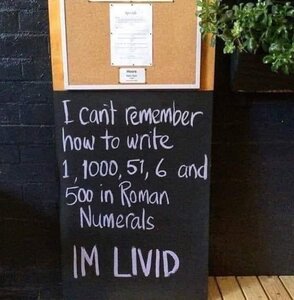 I can't remember
how to write
1, 1000, 51, 6 and
500 in Roman
Numerals
IM LIVID